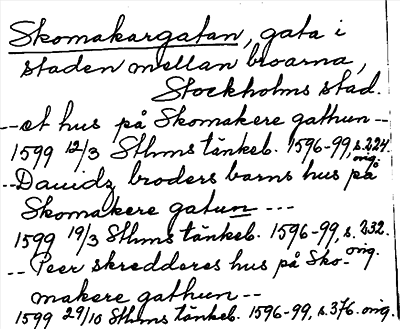 Skomakargatan, gata i
staden mellan broarna,
Stockholms stad.
--et hus på Skomakere gathun--
1599 12/3 Sthms tänkeb. 1596-99, s. 224.
orig.
--Dauidz broders barns hus på
Skomakere gatun ---
1599 19/3 Sthms tänkeb. 1596-99, s. 232.
orig.
-- Peer skredderes hus på Sko-
makere gathun --
1599 29/10 Sthms tänkeb. 1596-99, s. 376. orig.